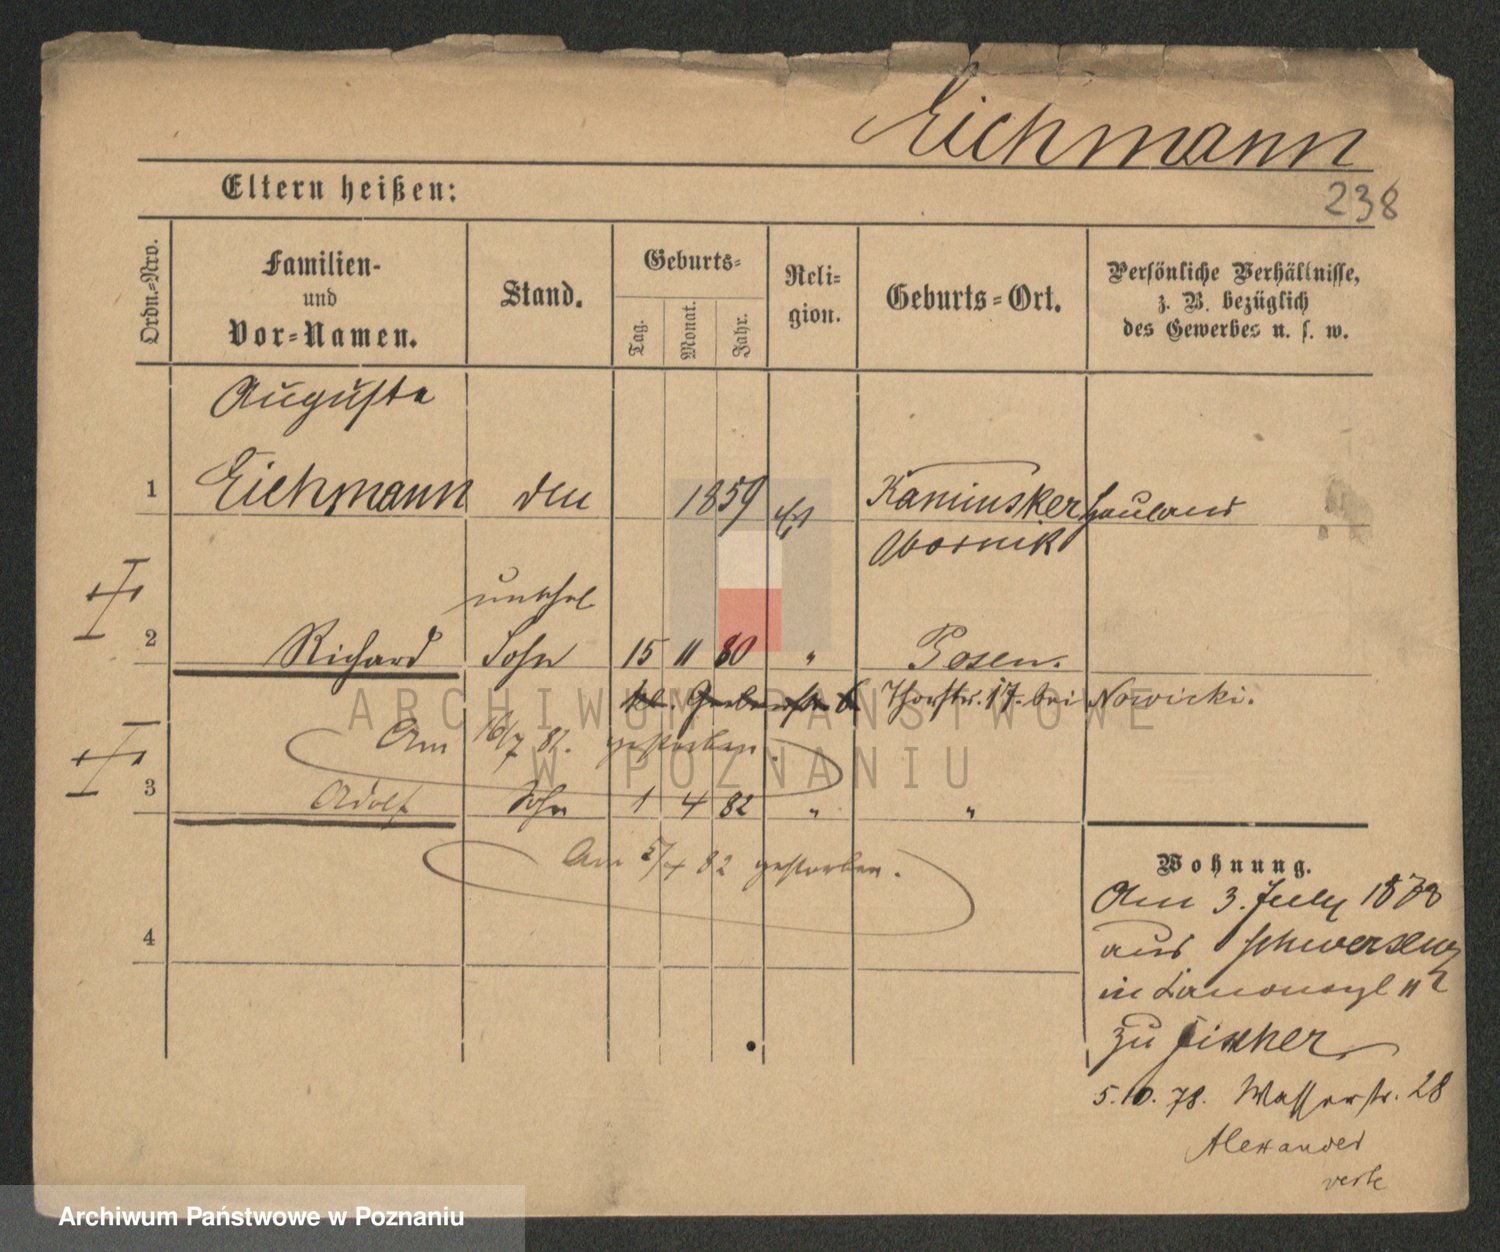 Eichmann
238
Eltern heißen:
Ordn.-Nro.
Familien-
und
Vor-Namen.
Stand.
Geburts-
Tag.
Monat.
Jahr.
Reli-
gion.
Geburts-Ort.
Persönliche Verhältnisse,
z. B. bezüglich
des Gewerbes u. s. w.
Auguste
1 Eichmann 1859 Kaminsker Hauland
Obornik
unehel
2 Richard Sohn 15 11 80 " Posen.
kl. Gerberstr. 6 Thorstr. 17. bei Nowicki.
Am 16/7 82. gestorben.
3 Adolf Sohn 1 4 82 " "
Am 5/4 82 gestorben.
4
Wohnung.
Am 3. July 1878
aus Schwersenz
in 11
zu Fischer
5.10.78. Wasserstr. 28
Alexander
ARCHIWUM PAŃSTWOWE
W POZNANIU
Archiwum Państwowe w Poznaniu